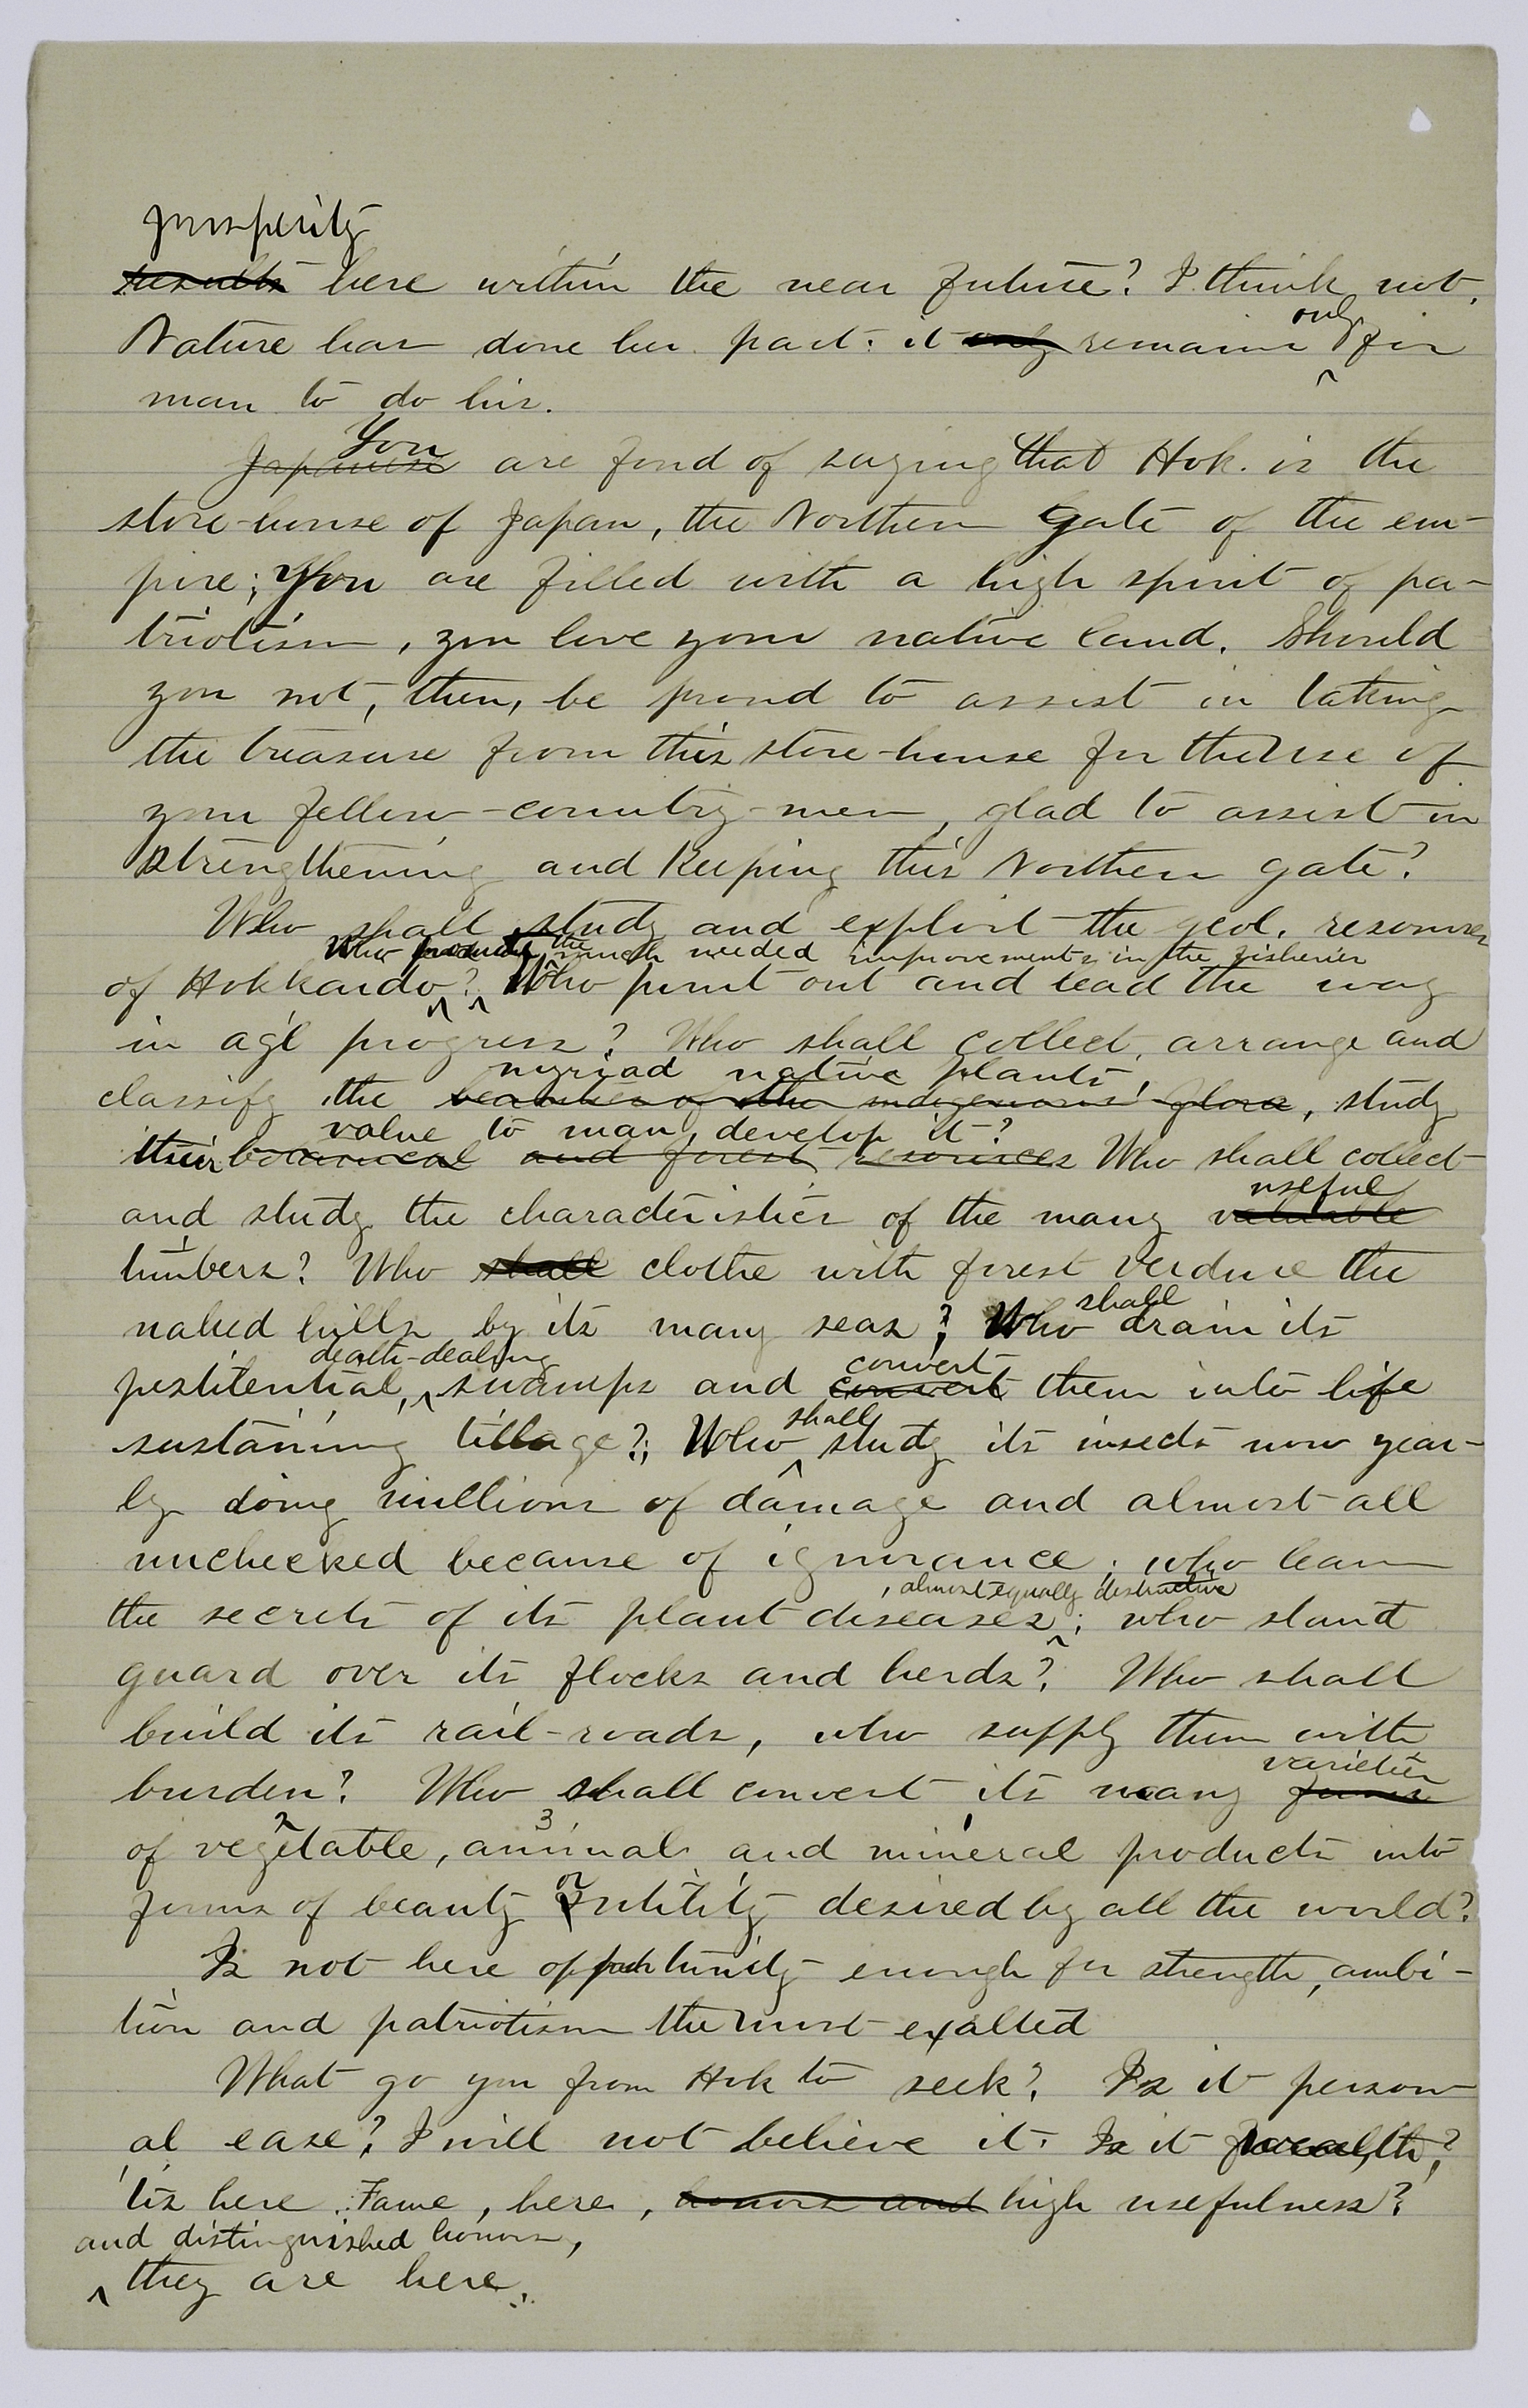 prosperity
results here within the near future? I think not.
only
Nature has done her part: it only remains for
man to do his.
You
Japanese are fond of saying that Hok. is the
store-house of Japan, the Northern Gate of the em-
pire; You are filled with a high spirit of pa-
triotism, you love your native land. Should
you not, then, be proud to assist in taking
the treasure from this store-house for the use of
your fellow-country-men, glad to assist in
strengthening and keeping this Northern gate?
Who shall study and exploit the geol. resources
Who the much needed improvements in the fisheries
of Hokkaido? Who point out and lead the way
in ag'l progress? Who shall collect, arrange and
myriad native plants,
classify the beauties of the indigenous flora, study
value to man, develop it?
their botanical and forest resources Who shall collect
useful
and study the characteristics of the many valuable
timbers? Who shall clothe with forest verdure the
shall
naked hills by its many seas? Who drain its
death-dealing convert
pestilential, swamps and convert them into life
shall
sustaining tillage?; Who study its insects now year-
ly doing millions of damage and almost all
unchecked because of ignorance; who learn
, almost equally destructive
the secrets of its plant diseases; who stand
guard over its flocks and herds? Who shall
build its rail-roads, who supply them with
varieties
burden? Who shall convert its many forms
of vegetable, animal and mineral products into
or
forms of beauty utility desired by all the world?
Is not here opportunity enough for strength, ambi-
tion and patriotism the most exalted
What go you from Hok to seek? Is it person
al ease? I will not believe it. Is it wealth?
'tis here. Fame, here, honors and high usefulness?
and distinguished honors,
they are here.